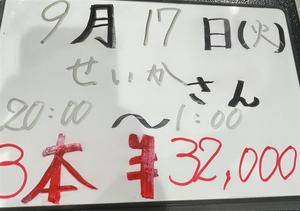 9月17日(火)
せいかさん
20:00〜1:00
3本 ¥32,000